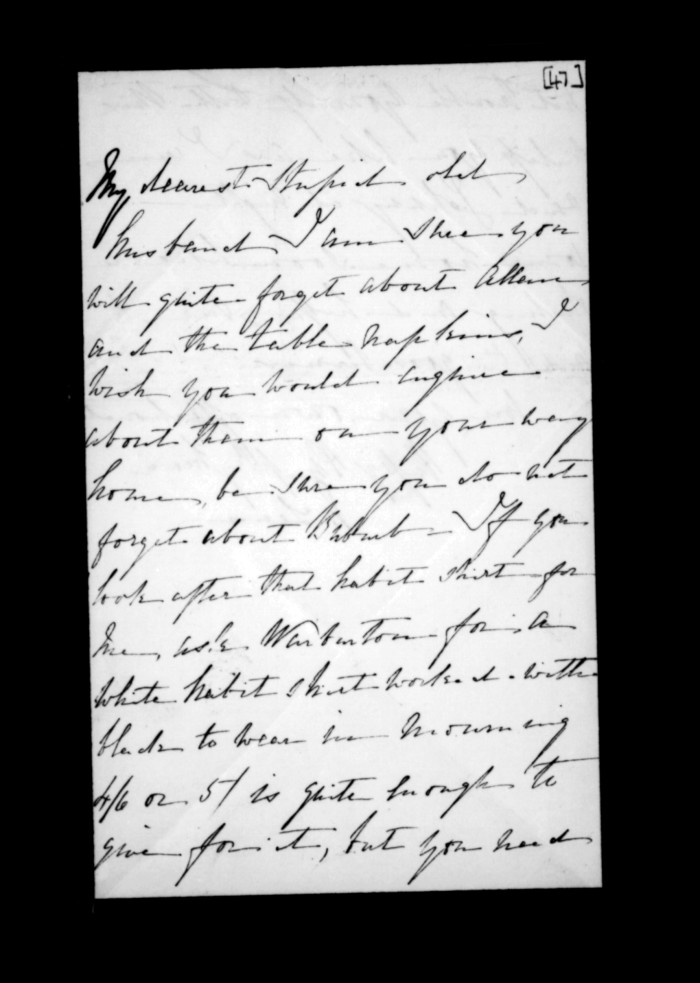 [47]
My dearest Stupid old
husband I am sure you
will quite forget about Allen
and the table napkins, I
wish you would enquire
about them on your way
home, be sure you do not
forget about If you
look after that habit shirt for
me, ask Warburton for a
white habit shirt worked with
black to wear in mourning
4/6 or 5/ is quite enough to
give for it, but you need